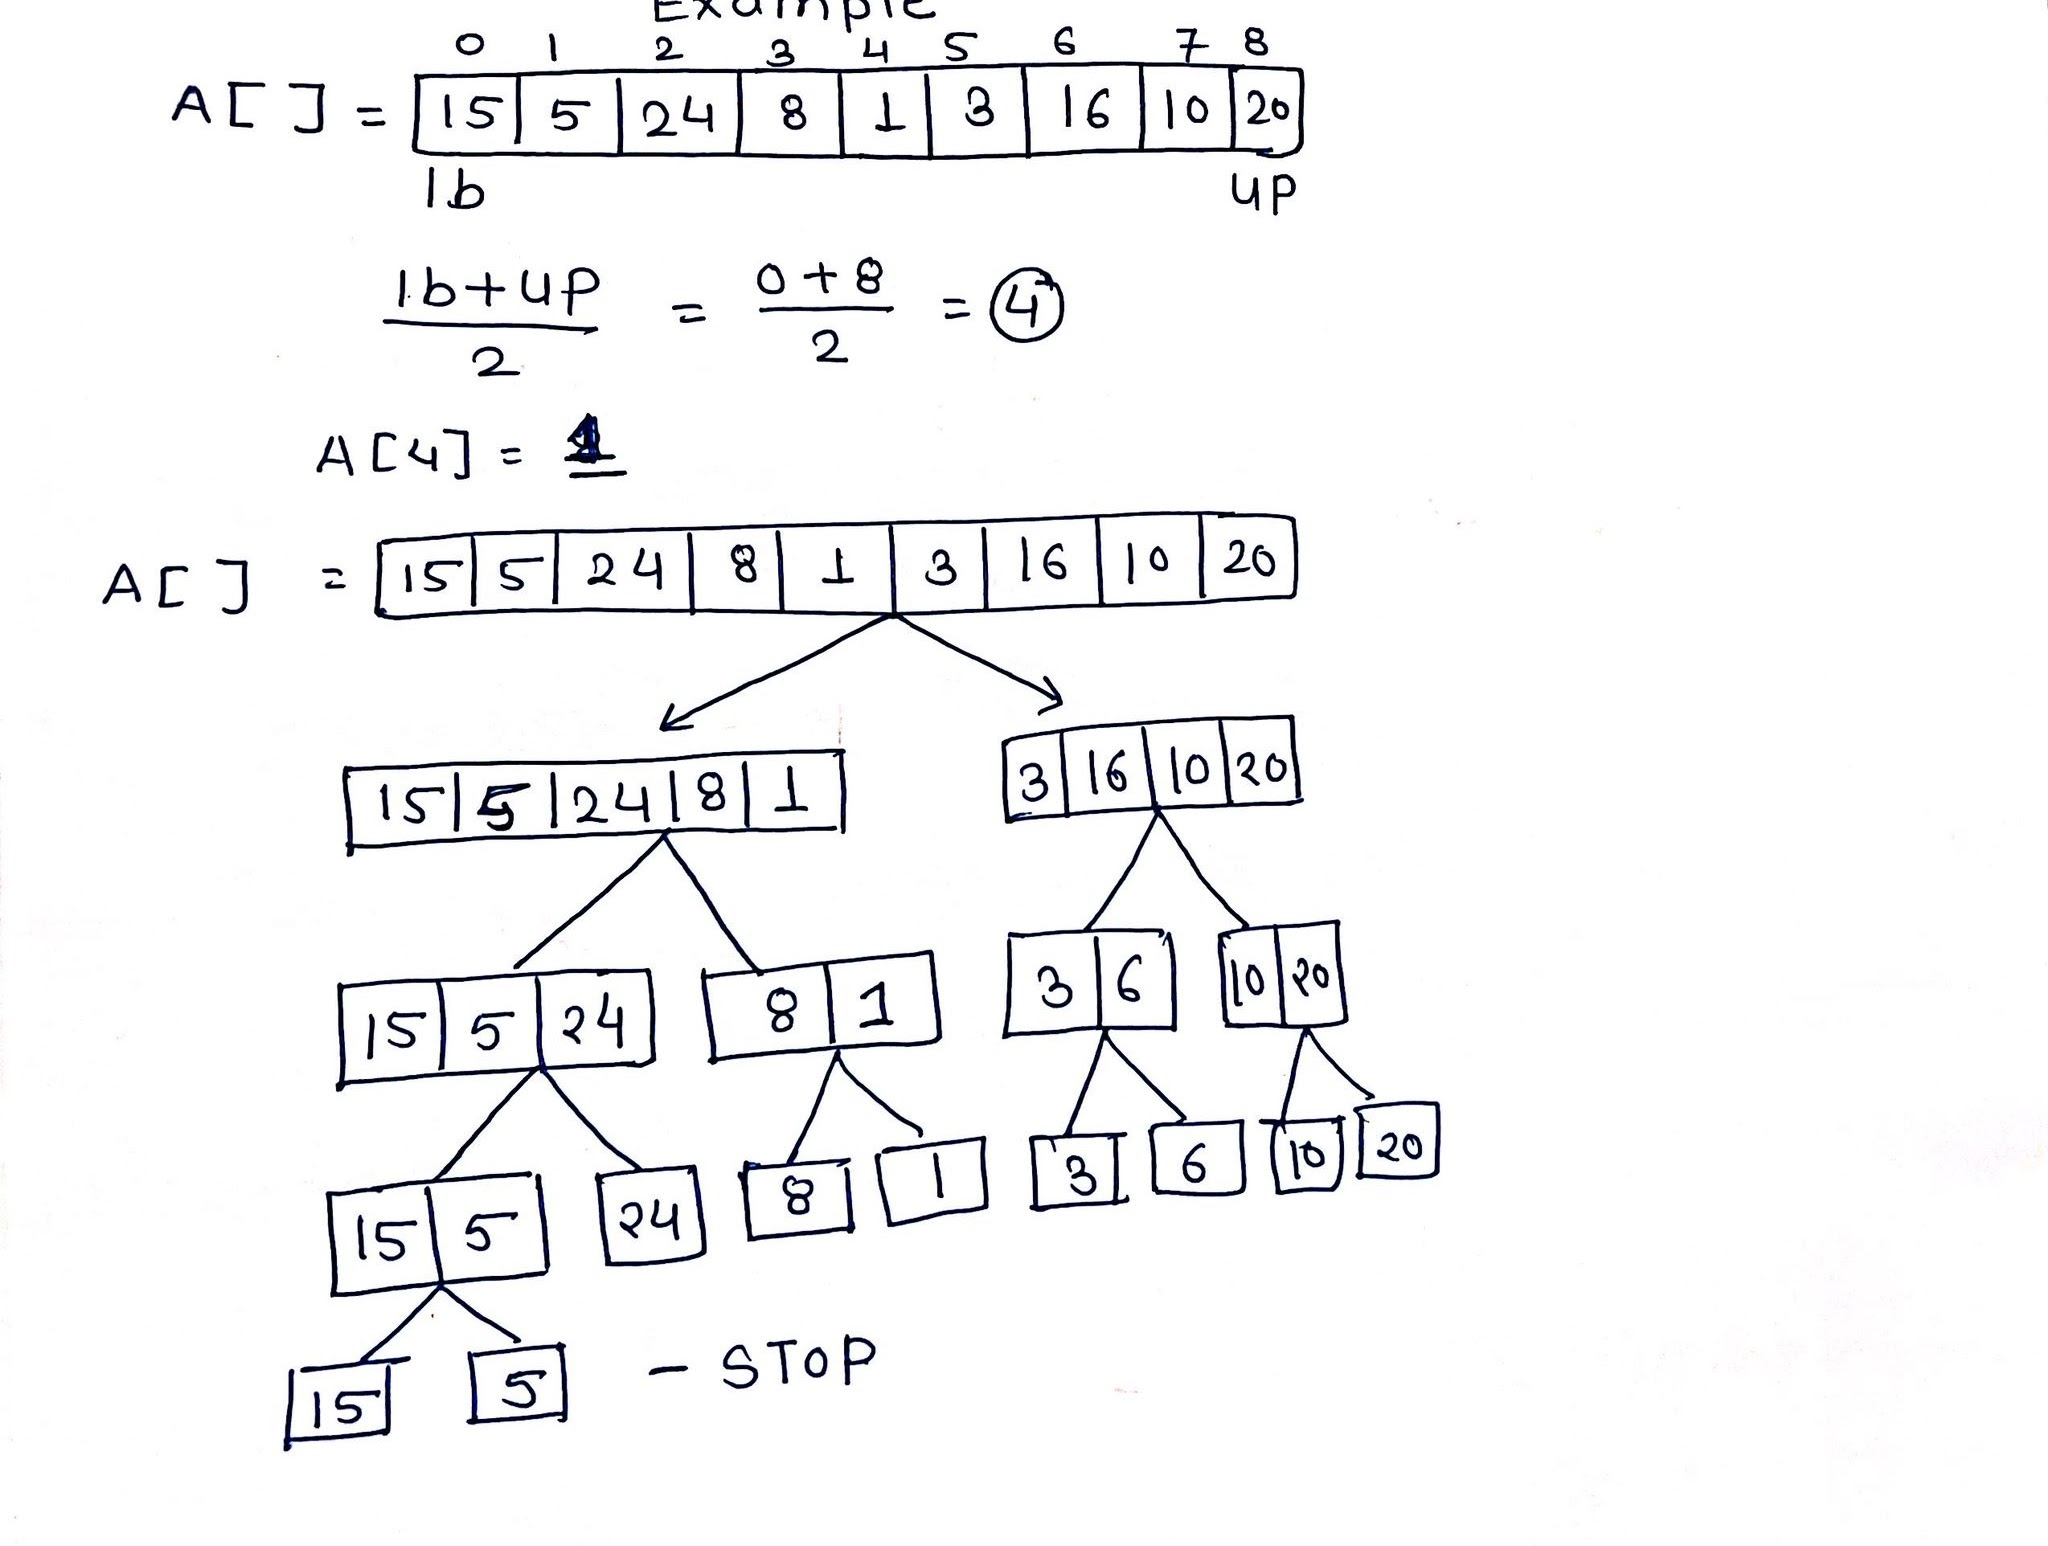 Example
0 1 2 3 4 5 6 7 8
A[ ] = 15 5 24 8 1 3 16 10 20
lb up
lb+up / 2 = 0+8 / 2 = 4
A[4] = 1
A[ ] = 15 5 24 8 1 3 16 10 20
15 5 24 8 1 3 16 10 20
15 5 24 8 1 3 6 10 20
15 5 24 8 1 3 6 10 20
15 5 - STOP